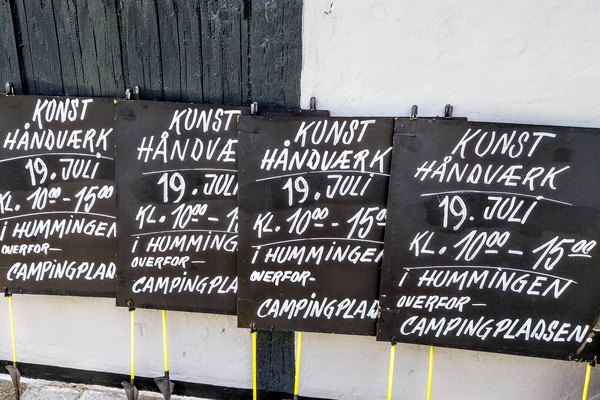 KUNST
HÅNDVÆRK
19. JULI
KL. 10⁰⁰ - 15⁰⁰
I HUMMINGEN
OVERFOR-
CAMPINGPLAD
KUNST
HÅNDVÆ
19. JUL
KL. 10⁰⁰ - 1
I HUMMING
OVERFOR-
CAMPINGPLA
KUNST
HÅNDVÆRK
19. JULI
KL. 10⁰⁰ - 15⁰⁰
I HUMMINGEN
OVERFOR-
CAMPINGPLAD
KUNST
HÅNDVÆRK
19. JULI
KL. 10⁰⁰ - 15⁰⁰
I HUMMINGEN
OVERFOR-
CAMPINGPLADSEN.